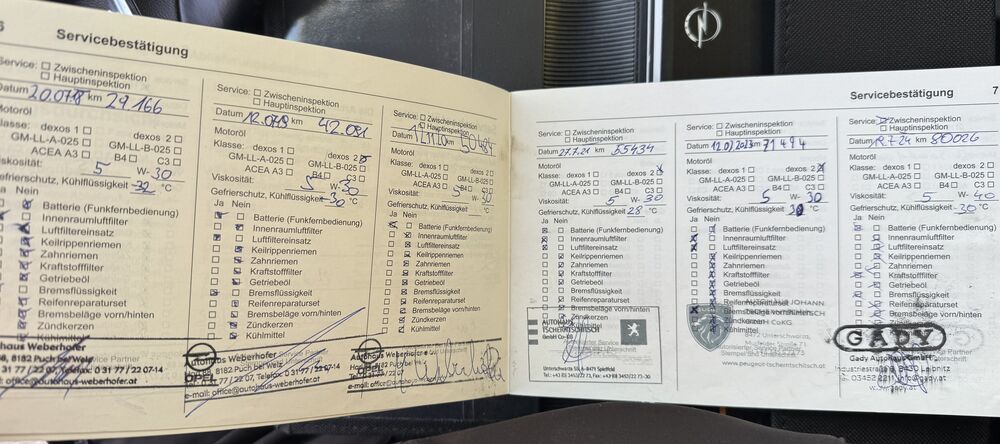 6
Servicebestätigung
Service: ☐ Zwischeninspektion
☐ Hauptinspektion
Datum 20.07.18 km 29 166
Motoröl
Klasse: dexos 1 ☐ dexos 2 ☐
GM-LL-A-025 ☐ GM-LL-B-025 ☐
ACEA A3 ☐ B4 ☐ C3 ☐
Viskosität: 5 W- 30
Gefrierschutz, Kühlflüssigkeit -32 °C
Ja Nein
Batterie (Funkfernbedienung)
Innenraumluftfilter
Luftfiltereinsatz
Keilrippenriemen
Zahnriemen
Kraftstofffilter
Getriebeöl
Bremsflüssigkeit
Reifenreparaturset
Bremsbeläge vorn/hinten
Zündkerzen
Kühlmittel
Weberhofer
8182 Puch bei Weiz
0 31 77 / 22 07-14
office@autohaus-weberhofer.at
Service: ☐ Zwischeninspektion
☐ Hauptinspektion
Datum 12.07.19 km 42.091
Motoröl
Klasse: dexos 1 ☐ dexos 2 ☒
GM-LL-A-025 ☐ GM-LL-B-025 ☐
ACEA A3 ☐ B4 ☐ C3 ☐
Viskosität: 5 W- 30
Gefrierschutz, Kühlflüssigkeit -30 °C
Ja Nein
Batterie (Funkfernbedienung)
Innenraumluftfilter
Luftfiltereinsatz
Keilrippenriemen
Zahnriemen
Kraftstofffilter
Getriebeöl
Bremsflüssigkeit
Reifenreparaturset
Bremsbeläge vorn/hinten
Zündkerzen
Kühlmittel
Autohaus Weberhofer
8182 Puch bei Weiz
OPEL
e-mail: office@autohaus-weberhofer.at
Service: ☐ Zwischeninspektion
☐ Hauptinspektion
Datum km 50484
Motoröl
Klasse: dexos 1 ☐ dexos 2 ☒
GM-LL-A-025 ☐ GM-LL-B-025 ☐
ACEA A3 ☐ B4 ☐ C3 ☐
Viskosität: 5 W- 30
Gefrierschutz, Kühlflüssigkeit -30 °C
Ja Nein
Batterie (Funkfernbedienung)
Innenraumluftfilter
Luftfiltereinsatz
Keilrippenriemen
Zahnriemen
Kraftstofffilter
Getriebeöl
Bremsflüssigkeit
Reifenreparaturset
Bremsbeläge vorn/hinten
Zündkerzen
Kühlmittel
Autohaus Weberhofer
8182 Puch bei Weiz
OPEL
e-mail: office@autohaus
Servicebestätigung 7
Service: ☐ Zwischeninspektion
☐ Hauptinspektion
Datum 27.7.21 km 55434
Motoröl
Klasse: dexos 1 ☐ dexos 2 ☒
GM-LL-A-025 ☐ GM-LL-B-025 ☐
ACEA A3 ☐ B4 ☐ C3 ☐
Viskosität: 5 W- 30
Gefrierschutz, Kühlflüssigkeit -28 °C
Ja Nein
Batterie (Funkfernbedienung)
Innenraumluftfilter
Luftfiltereinsatz
Keilrippenriemen
Zahnriemen
Kraftstofffilter
Getriebeöl
Bremsflüssigkeit
Reifenreparaturset
Bremsbeläge vorn/hinten
Zündkerzen
Kühlmittel
AUTOHAUS
TSCHERTSCHITSCH
GmbH Co-KG
Unterschwarza 58, A-8471 Spielfeld
Service: ☐ Zwischeninspektion
☐ Hauptinspektion
Datum 12.07.2023 km 71494
Motoröl
Klasse: dexos 1 ☐ dexos 2 ☒
GM-LL-A-025 ☐ GM-LL-B-025 ☐
ACEA A3 ☐ B4 ☐ C3 ☐
Viskosität: 5 W- 30
Gefrierschutz, Kühlflüssigkeit °C
Ja Nein
Batterie (Funkfernbedienung)
Innenraumluftfilter
Luftfiltereinsatz
Keilrippenriemen
Zahnriemen
Kraftstofffilter
Getriebeöl
Bremsflüssigkeit
JOHANN
Bremsbeläge
Zündkerzen
Kühlmittel
Stempel und Unterschrift
www.peugeot-tschertschitsch.at
Service: ☒ Zwischeninspektion
☐ Hauptinspektion
Datum 18.7.24 km 80026
Motoröl
Klasse: dexos 1 ☐ dexos 2 ☐
GM-LL-A-025 ☐ GM-LL-B-025 ☐
ACEA A3 ☐ B4 ☐ C3 ☐
Viskosität: 5 W- 40
Gefrierschutz, Kühlflüssigkeit -30 °C
Ja Nein
Batterie (Funkfernbedienung)
Innenraumluftfilter
Luftfiltereinsatz
Keilrippenriemen
Zahnriemen
Kraftstofffilter
Getriebeöl
Bremsflüssigkeit
Reifenreparaturset
Bremsbeläge vorn/hinten
Zündkerzen
Kühlmittel
GADY
Gady Autohaus GmbH
8430 Leibnitz
www.gady.at